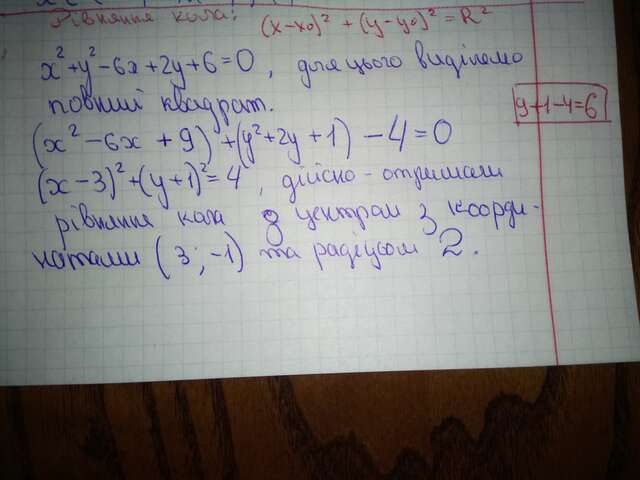 Рівняння кола: (x-x₀)² + (y-y₀)² = R²
x²+y²-6x+2y+6=0, для цього виділемо
повний квадрат.
9+1-4=6
(x²-6x+9)+(y²+2y+1)-4=0
(x-3)²+(y+1)²=4, дійсно-отримали
рівняння кола з центром з коорди-
натами (3;-1) та радіусом 2.